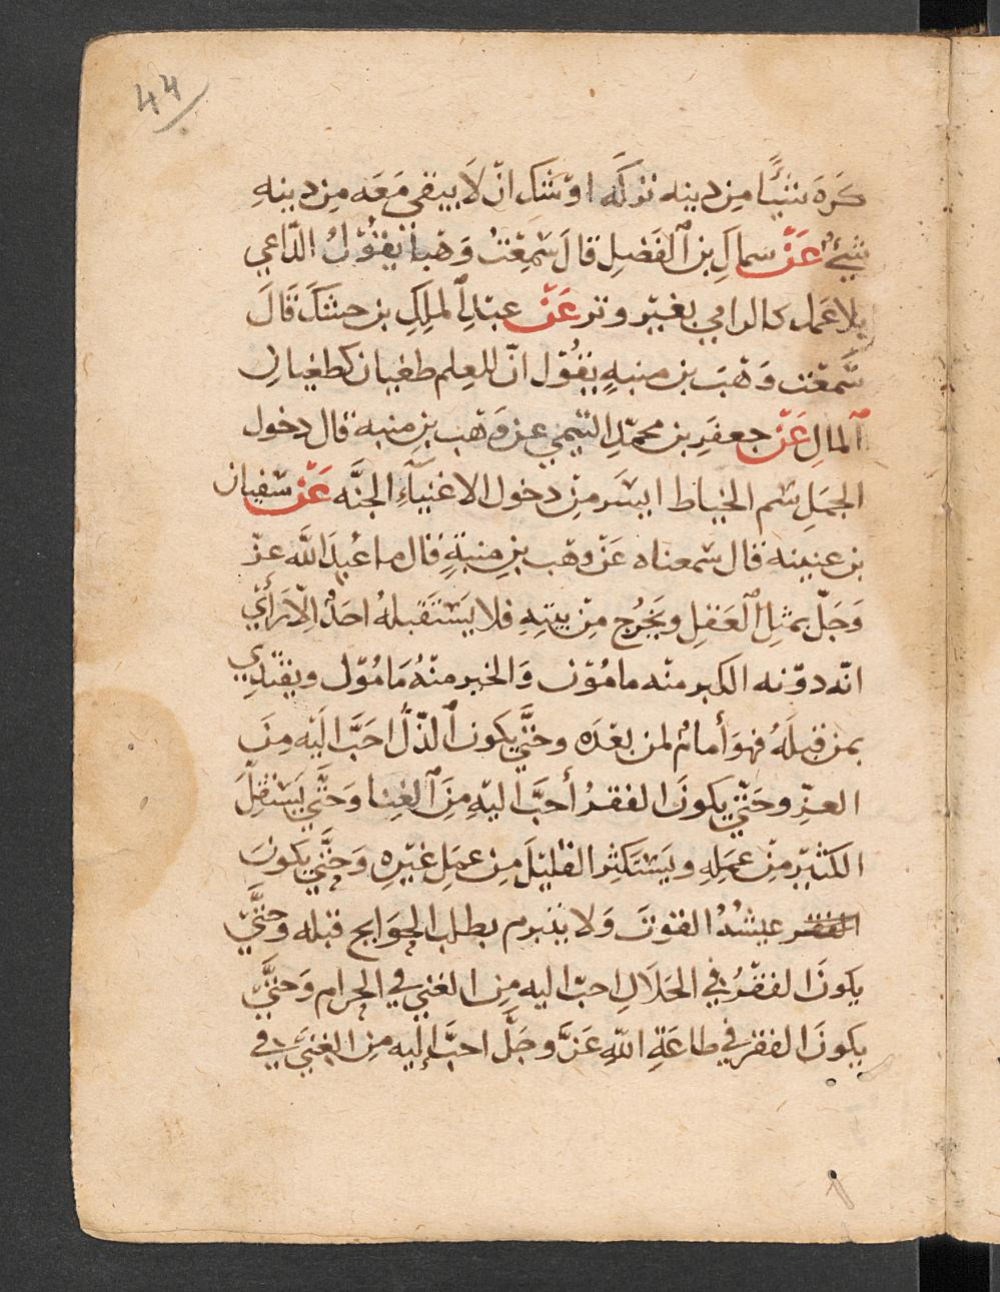 44
كَرَهَ شَيْئًا من دينه تركَه اوْشَكَ انْ لَا يبقى مَعَه مِن دينهِ
شيءٌ عَنْ سماكِ بن الفَضلِ قالَ سَمِعْتُ وَهْبًا يَقُوْلُ الدّاعي
بلا عَمل كالرامي بغيْر وتر عَنْ عبْدِ الملِكِ بن حشَكَ قَالَ
سَمعْت وَهْبَ بن منبهٍ يَقُوْل انّ للعِلم طغيان كطغيان
المالِ عَنْ جعفَرِ بن محمّدِ التيمي عن وَهْب بن منبه قال دخول
الجمَلِ سم الخياط ايسَر مِن دخول الاغنيَاءِ الجنَّه عَنْ سُفيان
بن عيينه قال سْمعناه عَنْ وهْب بن منبّهٍ قال ما عُبِدَ اللَّه عزّ
وَجَلّ بمثلِ العَقلِ ويَخرُج مِنْ بيتهِ فلا يَسْتَقبلهُ احَدٌ الّا رَأَيْ
انّه دوْنه الكبر منْه مامُوْن وَالخير منْهُ مَامُوْل ويقْتدِي
بمن قبلَهُ فهوَ أمامٌ لمن بعْدَه وحتَّي يكون الذّلّ احَبَّ اليْه مِنَ
العزِّ وحَتّي يكونَ الفقرُ أحبَّ اليْهِ مِنَ الغِنا وَحَتَّي يَسْتقِلّ
الكثيْر مِنْ عمَلِهِ ويَسْتكثِر القليْلَ مِن عمَلِ غيْرِهِ وَحَتَّي يكونَ
الفقر عيشُهُ القوْتَ وَلا يتبرم بطلب الحوَايج قبله وحتَّيْ
يكونَ الفقْرُ في الحَلَالِ احبّ اليه مِن الغني في الحرام وَحَتَّيْ
يكونَ الفقر في طاعَةِ اللّهِ عَزَّ وجَلَّ احبَّ إليه من الغنيَ في